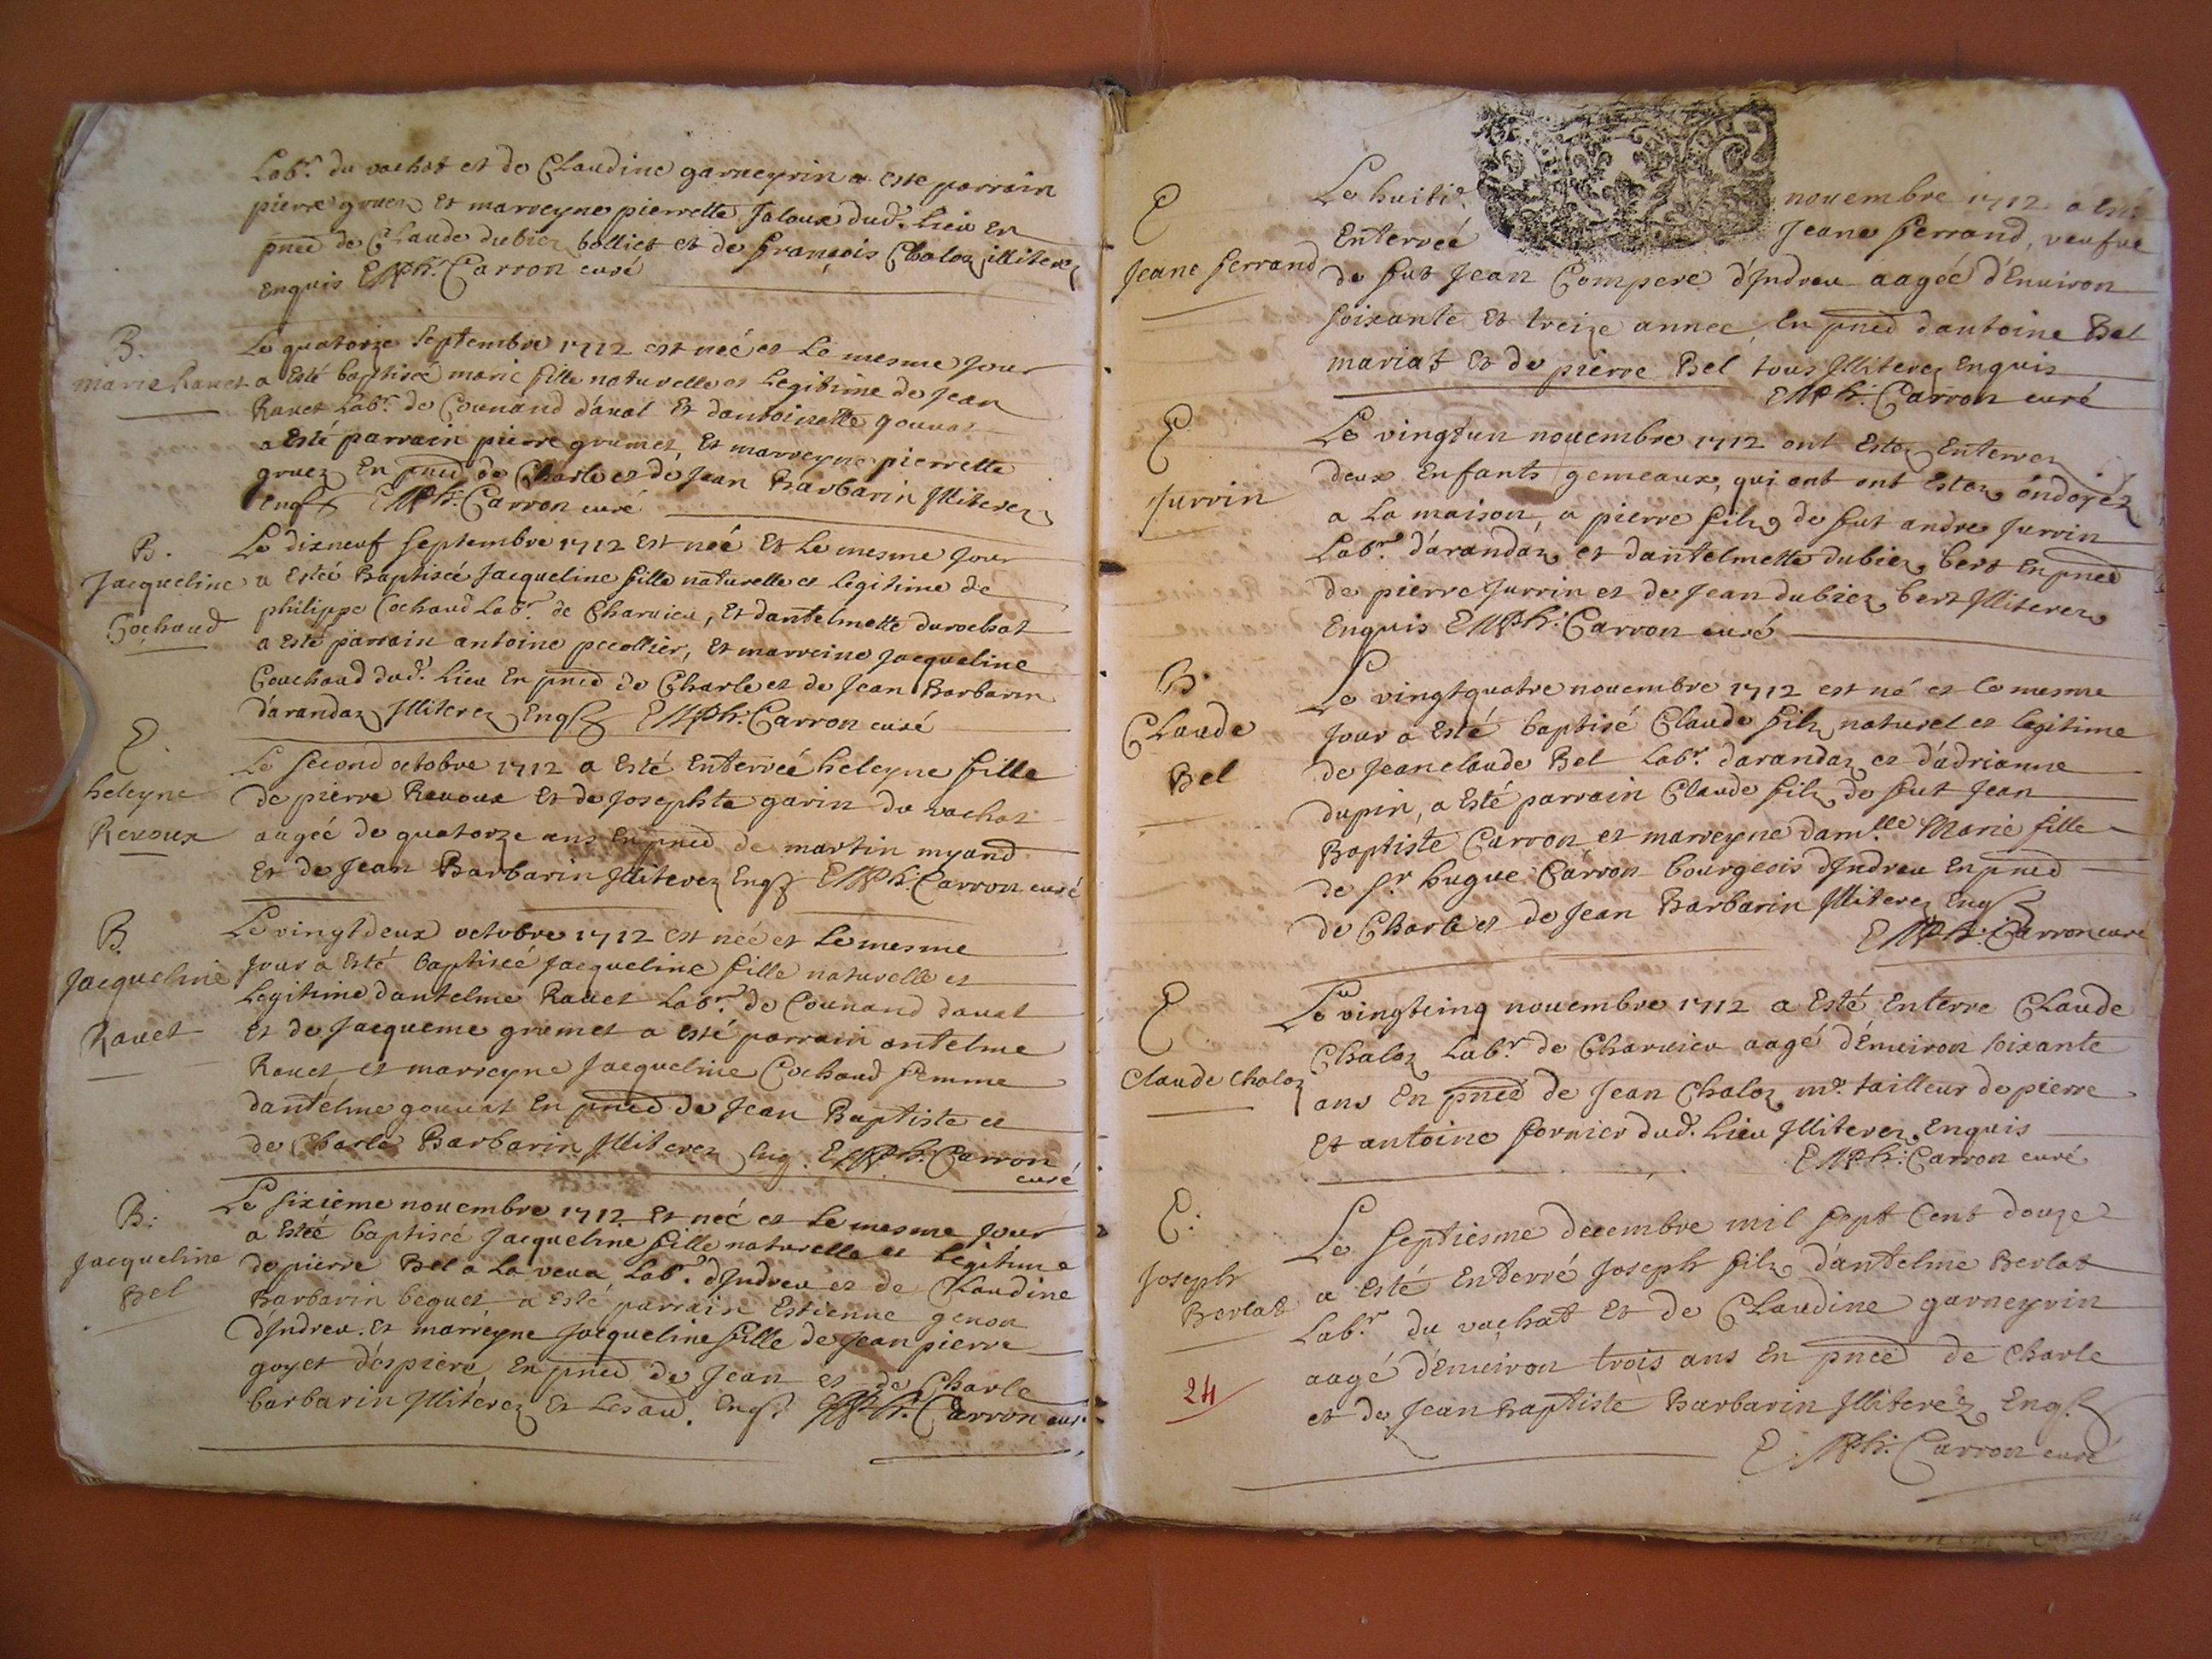 Labr. du vachat et de Claudine garneyrin a este parrain
pierre gruez et marreyne pierrette Jaloux dud. Lieu En
pnce de Claude dubiez bolliet et de françois Chaloz illiterez
enquis E MPh. Carron curé
B.
marie Ravet
Le quatorze septembre 1712 est neé et Le mesme Jour
a Esté baptiseé marie fille naturelle et Legitime de Jean
Ravet Labr. de Counand d'aval Et dantoinette gouvat
a Esté parrain pierre grumet, Et marreyne pierrette
gruez En pnce de Charle et de Jean Barbarin Illiterez
Enqs E MPh. Carron curé
B.
Jacqueline
Cochaud
Le dixneuf septembre 1712 est neé Et Le mesme Jour
a Esteé Baptiseé Jacqueline fille naturelle et legitime de
philippe Cochaud Labr. de Charvieu, Et dantelmette duvachat
a Esté parrain antoine pecollier, Et marreine Jacqueline
Couchaud dud. Lieu En pnce de Charle et de Jean Barbarin
d'arandaz Illiterez Enqs E MPh. Carron curé
E.
heleyne
Revoux
Le second octobre 1712 a Esté Enterreé heleyne fille
de pierre Revoux Et de Josephte garin du vachat
aageé de quatorze ans En pnce de martin myand
Et de Jean Barbarin Illiterez Enqs E MPh. Carron curé
B.
Jacqueline
Ravet
Le vingtdeux octobre 1712 est neé et Le mesme
Jour a Esté baptiseé Jacqueline fille naturelle et
Legitime dantelme Ravet Labr. de Counand daval
Et de Jacqueme grumet a esté parrain antelme
Ravet et marreyne Jacqueline Cochaud femme
dantelme gouvat En pnce de Jean Baptiste et
de Charle Barbarin Illiterez Enq. E MPh. Carron
curé
B.
Jacqueline
Bel
Le sixieme novembre 1712 Et neé et Le mesme Jour
a Esteé baptiseé Jacqueline fille naturelle et Legitime
de pierre Bel a La veua Labr. d'Indreu et de Klaudine
Barbarin beguet a Esté parrain Estienne genon
d'Indreu. Et marreyne Jacqueline fille de Jean pierre
goyet d'espiere, En pnce de Jean et de Charle
barbarin Illiterez Et Lesaud. Enqs E MPh. Carron cur.
E
Jeane ferrand
Le huitie. novembre 1712 a Esté
Enterreé Jeane ferrand, veufve
de fut Jean Compere d'Indreu aageé d'Environ
soixante Et treize annee, En pnce dantoine Bel
mariat Et de pierre Bel tous Illiterez Enquis
E MPh. Carron curé
E
Jurrin
Le vingtun novembre 1712 ont Estez Enterrez
deux Enfants gemeaux, qui ont ont Estez ondoyéz
a La maison, a pierre filz de fut andre Jurrin
Labr. d'arandaz et dantelmette dubiez bert En pnce
de pierre Jurrin et de Jean dubiez bert Illiterez
Enquis E MPh. Carron curé
B.
Claude
Bel
Le vingtquatre novembre 1712 est né et Le mesme
Jour a Esté baptisé Claude filz naturel et legitime
de Jeanclaude Bel Labr. darandaz et d'adrianne
dupin, a Esté parrain Claude filz de fut Jean
Baptiste Carron et marreyne damlle Marie fille
de sr hugue Carron bourgeois d'Indreu En pnce
de Charle et de Jean Barbarin Illiterez Enqs
E MPh. Carron curé
E
Claude Chaloz
Le vingtcinq novembre 1712 a Esté Enterre Claude
Chaloz Labr de Charvieu aagé d'Environ soixante
ans En pnce de Jean Chaloz me. tailleur de pierre
Et antoine fornier dud. Lieu Illiterez Enquis
E MPh. Carron curé
E.
Joseph
Berlat
Le septiesme decembre mil sept Cent douze
a Esté Enterré Joseph filz d'antelme Berlat
Labr du vachat Et de Claudine garneyrin
aagé d'Environ trois ans En pnce de Charle
et de Jean Baptiste Barbarin Illiterez Enqs
E MPh. Carron curé
24